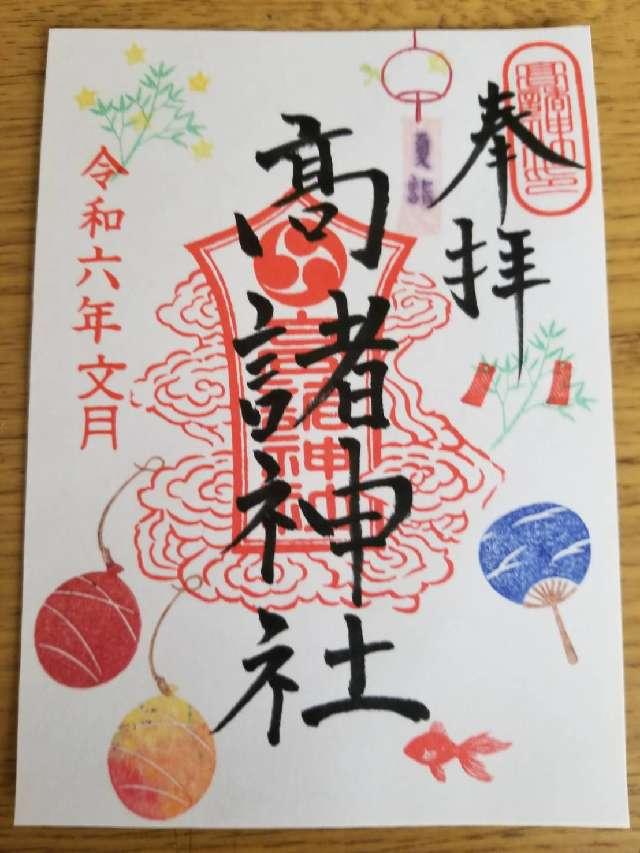 奉拝
夏詣
高諸神社
高諸神社
令和六年文月